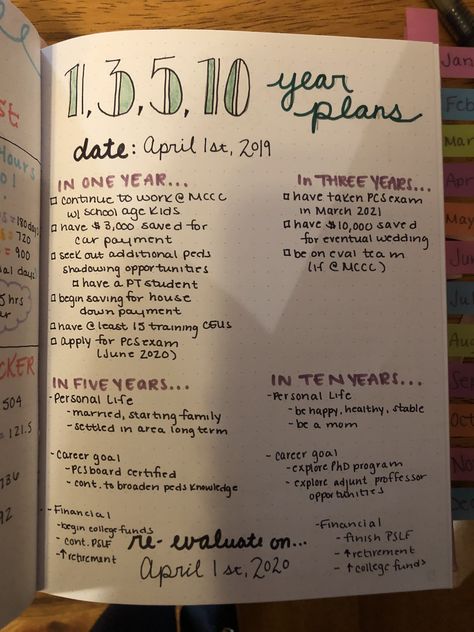 1, 3, 5, 10 year plans
date: April 1st, 2019
IN ONE YEAR...
continue to work @ MCCC
w/ school age kids
have $3,000 saved for
car payment
seek out additional peds
shadowing opportunities
have a PT student
begin saving for house
down payment
have @ least 15 training CEUs
apply for PCS exam
(June 2020)
IN THREE YEARS...
have taken PCS exam
in March 2021
have $10,000 saved
for eventual wedding
be on eval team
(if @ MCCC)
IN FIVE YEARS...
-Personal Life
-married, starting family
-settled in area long term
-Career goal
-PCS board certified
-cont. to broaden peds knowledge
-Financial
-begin college funds
-cont. PSLF
-↑ retirement
IN TEN YEARS...
-Personal Life
-be happy, healthy, stable
-be a mom
-Career goal
-explore PhD program
-explore adjunt proffessor
opportunities
-Financial
-finish PSLF
-↑ retirement
-↑ college funds
re-evaluate on...
April 1st, 2020
Jan
Feb
Ma
Apr
May
Jun
Jul
Au
Se
Oct
No
Dec
st
Hours
= 180 day
= 720
= 900
al days!
5 hrs
CKER
504
= 121.5
736
92